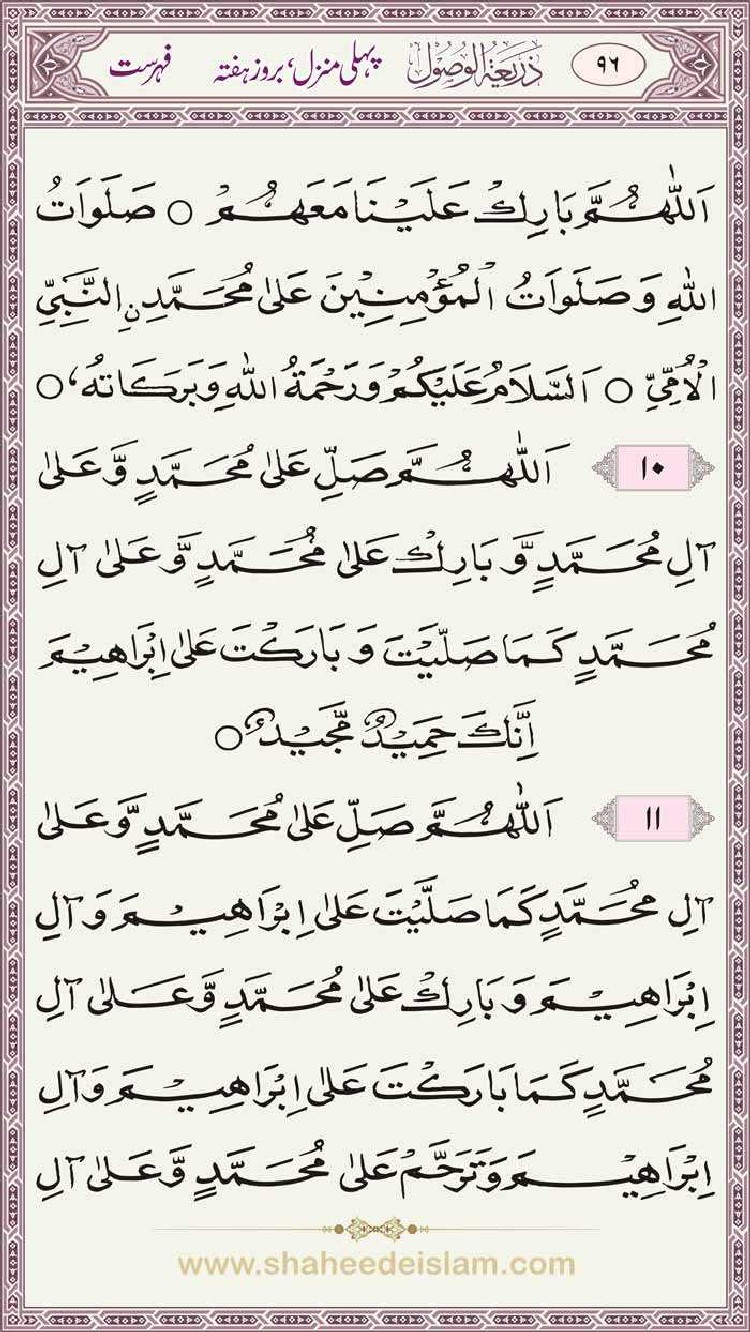 ۹۶ ذَرِیعَۃُ الوُصُول پہلی منزل، بروز ہفتہ فہرست
اَللّٰهُمَّ بَارِكْ عَلَيْنَا مَعَهُمْ ○ صَلَوَاتُ
اللهِ وَ صَلَوَاتُ الْمُؤْمِنِيْنَ عَلىٰ مُحَمَّدِ نِ النَّبِيِّ
الْاُمِّيِّ ○ اَلسَّلَامُ عَلَيْكُمْ وَرَحْمَةُ اللهِ وَبَرَكَاتُهٗ، ○
۱۰ اَللّٰهُمَّ صَلِّ عَلىٰ مُحَمَّدٍ وَّعَلىٰ
آلِ مُحَمَّدٍ وَّ بَارِكْ عَلىٰ مُحَمَّدٍ وَّ عَلىٰ آلِ
مُحَمَّدٍ كَمَا صَلَّيْتَ وَ بَارَكْتَ عَلىٰ اِبْرَاهِيْمَ
اِنَّكَ حَمِيْدٌ مَّجِيْدٌ ○
۱۱ اَللّٰهُمَّ صَلِّ عَلىٰ مُحَمَّدٍ وَّعَلىٰ
آلِ مُحَمَّدٍ كَمَا صَلَّيْتَ عَلىٰ اِبْرَاهِيْمَ وَ آلِ
اِبْرَاهِيْمَ وَ بَارِكْ عَلىٰ مُحَمَّدٍ وَّعَلىٰ آلِ
مُحَمَّدٍ كَمَا بَارَكْتَ عَلىٰ اِبْرَاهِيْمَ وَآلِ
اِبْرَاهِيْمَ وَتَرَحَّمْ عَلىٰ مُحَمَّدٍ وَّعَلىٰ آلِ
www.shaheedeislam.com